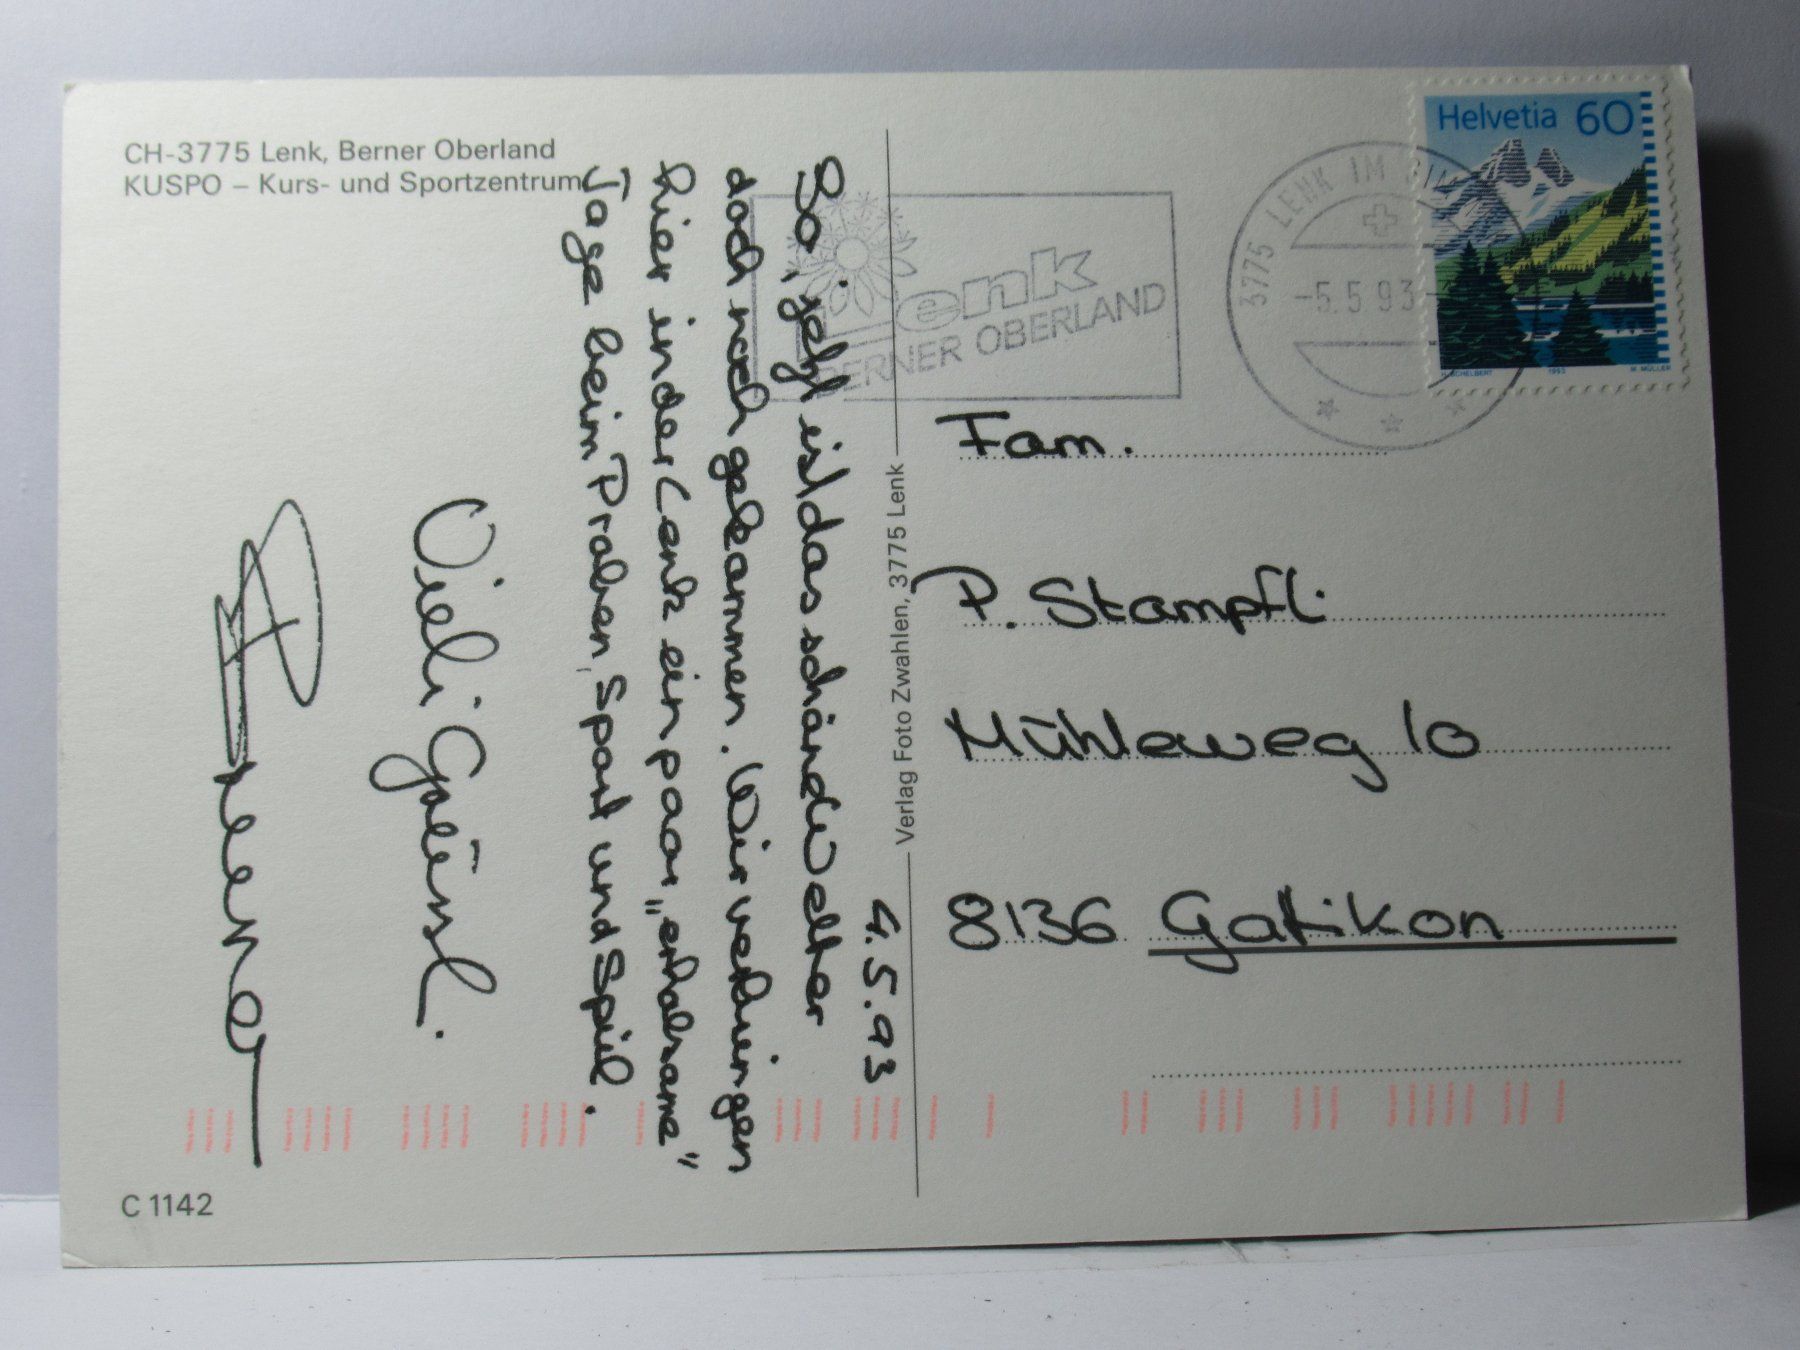 CH-3775 Lenk, Berner Oberland
KUSPO – Kurs- und Sportzentrum
4.5.93
So, jetzt ist das schöne Wetter
doch noch gekommen. Wir verbringen
hier in der Lenk ein paar „erholsame"
Tage beim Proben, Sport und Spiel.
Vieli Grüessli
C 1142
Verlag Foto Zwahlen, 3775 Lenk
Lenk
BERNER OBERLAND
3775 LENK IM
-5.5.93-
Helvetia 60
H. SCHELBERT 1993 M. MÜLLER
Fam.
P. Stampfli
Mühleweg 10
8136 Gattikon